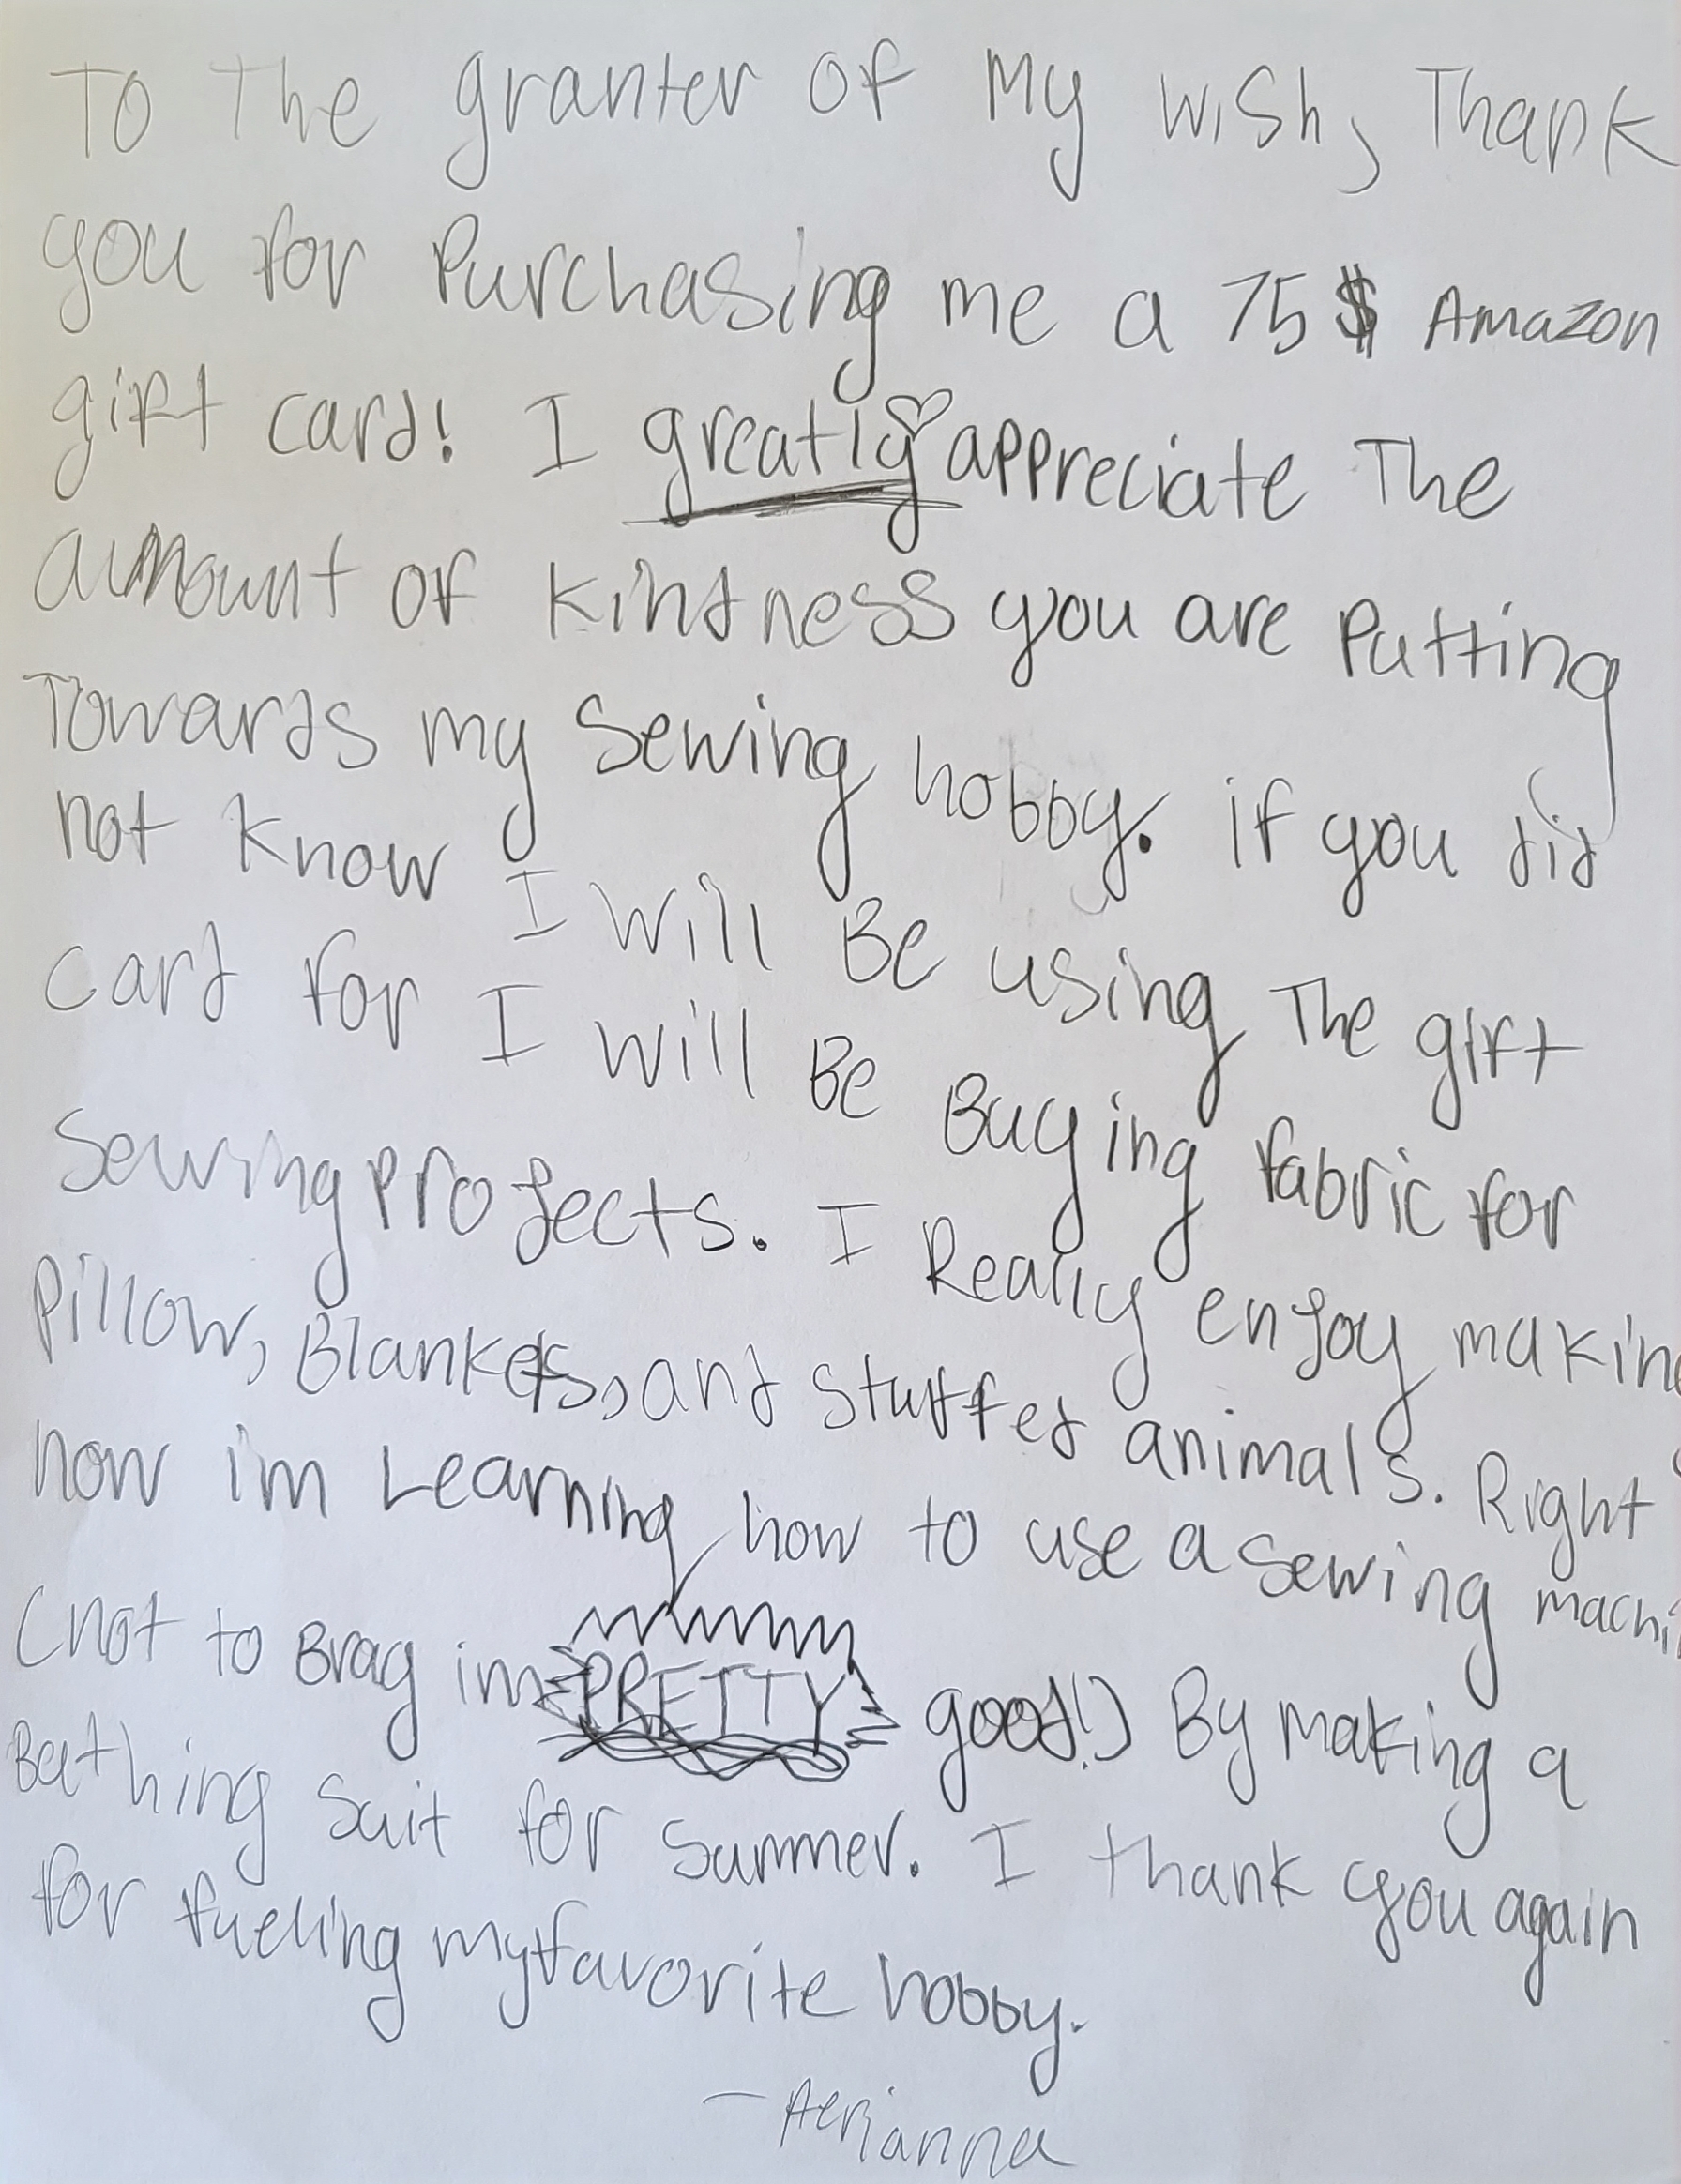 To The granter of My wish, Thank
you for Purchasing me a 75$ Amazon
gift card! I greatly appreciate The
amount of kindness you are Putting
Towards my Sewing hobby. if you did
not know I will Be using The gift
card for I will Be Buying fabric for
Sewing Projects. I Really enjoy makin
Pillow, Blankets, and stuffed animals. Right
now im Learning how to use a sewing machi
(not to Brag im PRETTY good!) By making a
Bathing Suit for Summer. I thank you again
for fueling my favorite hobby.
- Aerianna